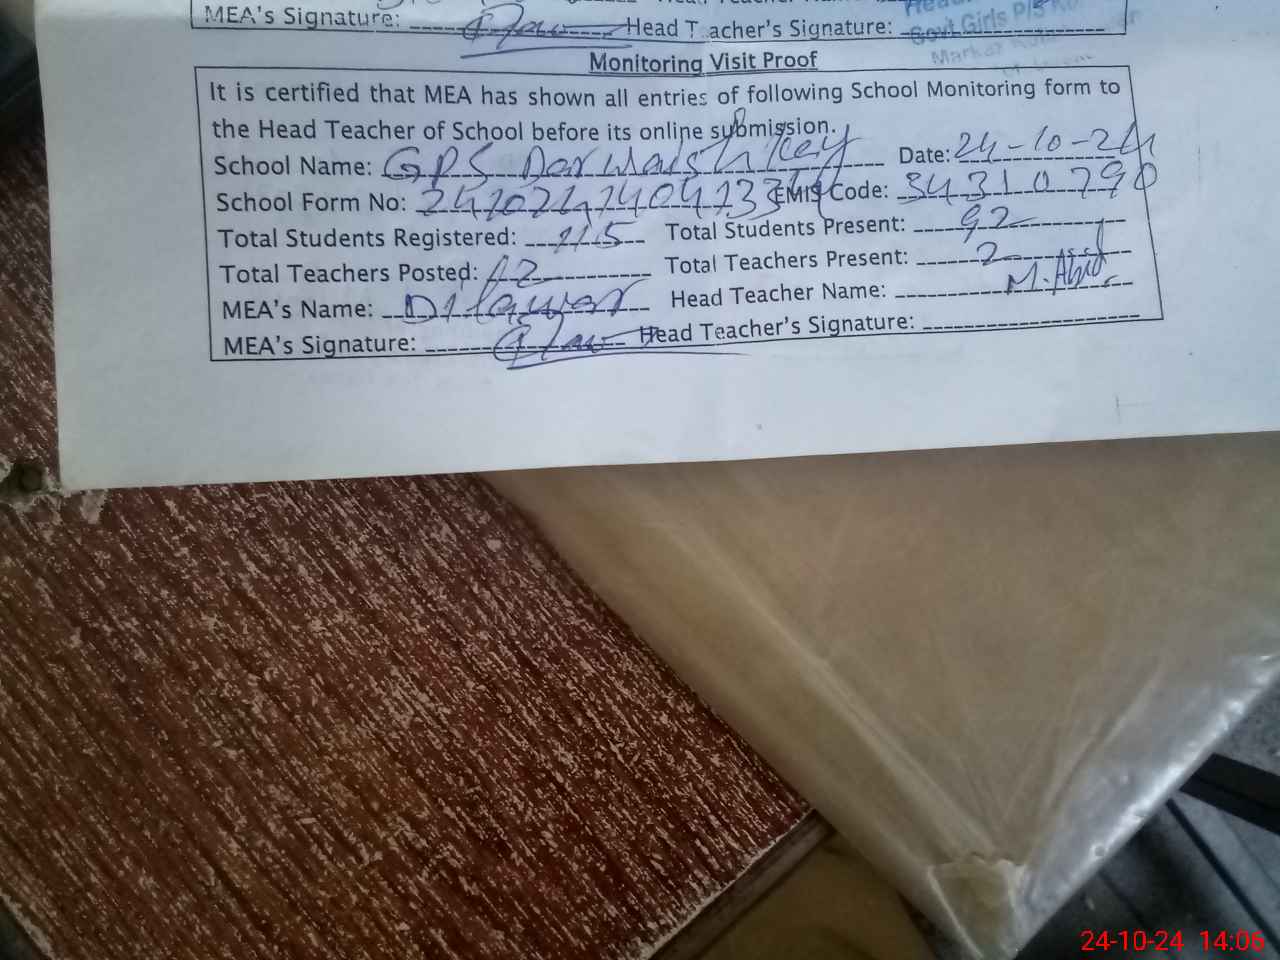 MEA's Signature: Head Teacher's Signature:
Govt Girls P/S
Markaz
Monitoring Visit Proof
It is certified that MEA has shown all entries of following School Monitoring form to
the Head Teacher of School before its online submission.
School Name: GPS Darwaish Key Date: 24-10-24
School Form No: EMIS Code: 34310790
Total Students Registered: 115 Total Students Present: 92
Total Teachers Posted: 2 Total Teachers Present: 2
MEA's Name: Dilawar Head Teacher Name: M. Abid
MEA's Signature: Head Teacher's Signature:
24-10-24 14:06